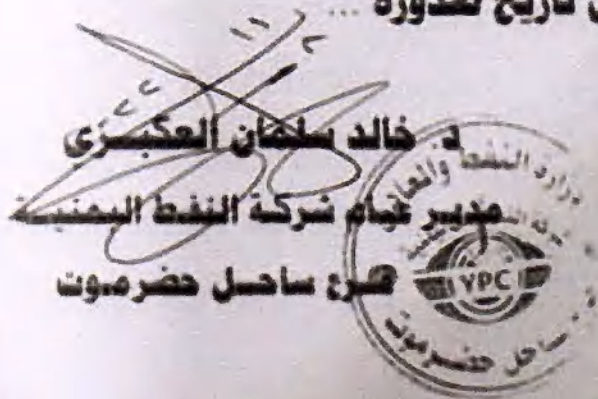 تاريخ صدوره ...
د. خالد سلمان العكبري
مدير عام شركة النفط اليمنية
فرع ساحل حضرموت
وزارة النفط والمعادن
YPC
ساحل حضرموت